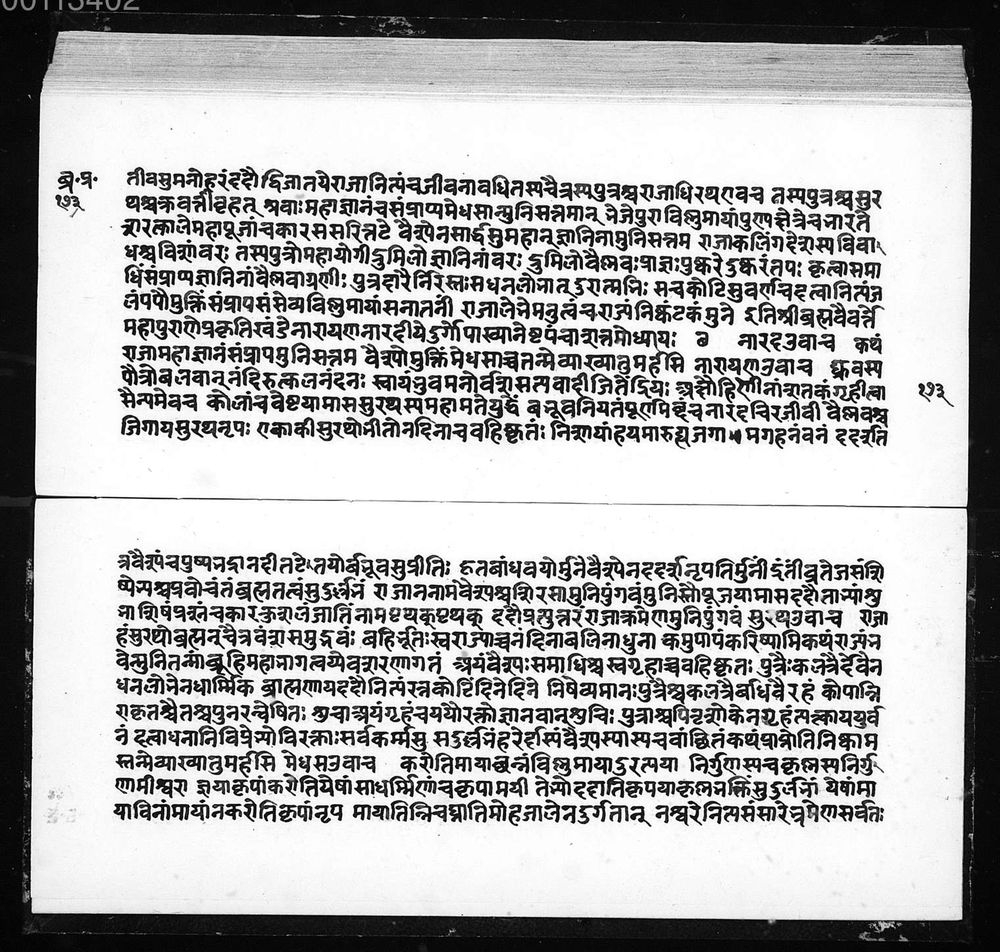 00113402
ब्र॰प्र॰
१७३
तीवसुमनोहरं ददौ द्विजातये राजा नित्यं च जीवनावधि तस्य चैत्रस्य पुत्रश्च राजाधिरथ एव च तस्य पुत्रश्च सुर
थश्चक्रवर्त्ती बृहत् श्रवाः महाज्ञानं च संप्राप्य मेधसान्मुनिसत्तमान् भेजे पुरा विष्णुमायां पुण्यक्षेत्रे च भारते
शरत्काले महापूजां चकार स सरित्तटे वैश्येन सार्द्धं सुमहान् ज्ञानिनां मुनिसत्तम राजा कलिंगदेशस्य विवा
धश्च विशांवरः तस्य पुत्रो महायोगी द्रुमिलो ज्ञानिनां वरः द्रुमिलो वैष्णवः प्राज्ञः पुष्करे दुष्करं तपः कृत्वा समा
धिं संप्राप्य ज्ञानिनां वैष्णवाग्रणीः पुत्रदारैर्निरस्तः स धनलोभात् दुरात्मभिः स च कोटिसुवर्णं च दत्वा नित्यं ज
लं पपौ मुक्तिं संप्राप संसेव्य विष्णुमायां सनातनीं राजा लेभे मनुत्वं च राज्यं निष्कंटकं मुने इति श्रीब्रह्मवैवर्त्ते
महापुराणे प्रकृतिखंडे नारायणनारदीये दुर्गोपाख्याने ष्टपंचाशत्तमोध्यायः नारद उवाच कथं
राजा महाज्ञानं संप्राप मुनिसत्तम वैश्यो मुक्तिं मेधसाच्च तन्मे व्याख्यातुमर्हसि नारायण उवाच ध्रुवस्य
पौत्रो बलवान् नंदिरुत्कलनंदनः स्वायंभुवमनोर्वंशः सत्यवादी जितेंद्रियः अक्षौहिणीनां शतकं गृहीत्वा
१७३
सैन्यमेव च कोलां च वेष्टयामास सुरथस्य महामते युद्धं बभूव नियतं पूर्णमब्दं च नारद चिरजीवी वैष्णवश्च
जिगाय सुरथनृपः एकाकी सुरथो भीतो नंदिना च बहिष्कृतः निशायां हयमारुह्य जगाम गहनं वनं ददर्श त
त्र वैश्यं च पुष्पभद्रानदीतटे तयोर्बभूव सुप्रीतिः कृतबांधवयोर्मुने वैश्येन ददर्श नृपतिर्मुनींद्रं तीव्रतेजसं शि
ष्येभ्यश्च प्रवोचंतं ब्रह्मतत्वं सुदुर्लभं राजा ननाम वैश्यश्च शिरसा मुनिपुंगवं मुनिस्तौ पूजयामास ददौ ताभ्यां शु
भाशिषं प्रश्नं चकार कुशलं जातिं नाम पृथक् पृथक् ददौ प्रत्युत्तरं राजा क्रमेण मुनिपुंगवं सुरथ उवाच राजा
हं सुरथो ब्रह्मन् चैत्रवंशसमुद्भवः बहिर्भूतः स्वराज्याच्च नंदिना बलिनाधुना कमुपायं करिष्यामि कथं राज्यं भ
वेन्मुनि तन्मां ब्रूहि महाभाग त्वय्येव शरणागतं अयं वैश्यः समाधिश्च स्वगृहाच्च बहिष्कृतः पुत्रैः कलत्रैर्दैवेन
धनलोभेन धार्मिक ब्राह्मणाय ददौ नित्यं रत्नकोटिं दिने दिने निषेध्यमानः पुत्रैश्च कलत्रैर्बांधवैरहं कोपान्नि
राकृतश्चैतैश्च पुनरन्वेषितः शुचा अयं गृहं च न ययौ रक्तो ज्ञानवान् शुचिः पुत्राश्च पितृशोकेन गृहं त्यक्त्वा ययुर्व
नं दत्वा धनानि विप्रेभ्यो विरक्ताः सर्वकर्म्मसु सुदुर्लभं हरेर्दास्यं वैश्यस्यास्य च वांछितं कथं प्राप्नोति निष्काम
स्तन्मे व्याख्यातुमर्हसि मेधस उवाच करोति मायाच्छन्नं विष्णुमाया दुरत्यया निर्गुणस्य च कृष्णस्य निर्गु
णामीश्वराज्ञया कृपां करोति येषां सा धर्म्मिणां च कृपामयी तेभ्यो ददाति कृपया कृष्णभक्तिं सुदुर्लभां येषां मा
याविनां माया न करोति कृपां नृप मायातिन्निबध्नाति मोहजालेन दुर्गतान् नश्वरे नित्यसंसारे भ्रमेण सर्वतः